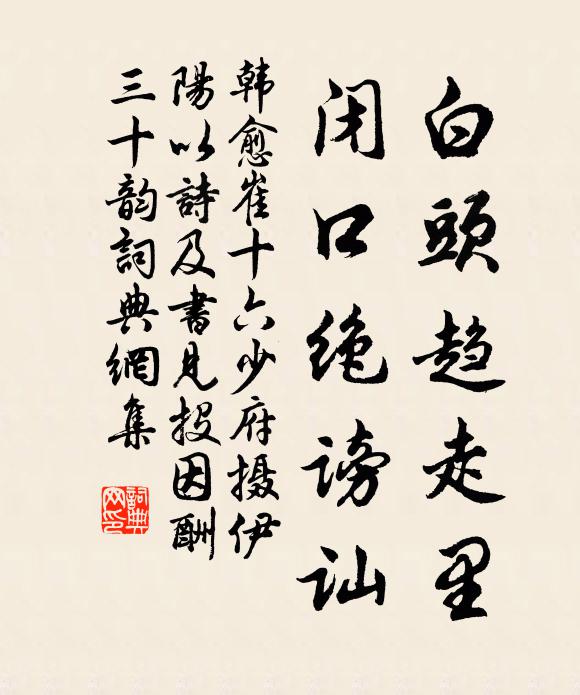 白頭趋走里
闭口绝谤讪
韩愈崔十六少府摄伊
陽以詩及書見投因酬
三十韵詞典網集
詞典网印